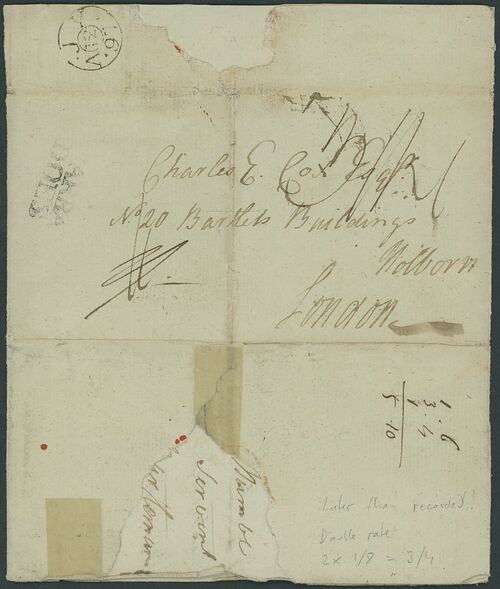 Charles E. Cox Esqr.
No 20 Bartlets Buildings
Holborn
London
1. 6
3. 4
5 10
Humble
Servant
Later than recorded!
Double rate
2x 1/8 = 3/4